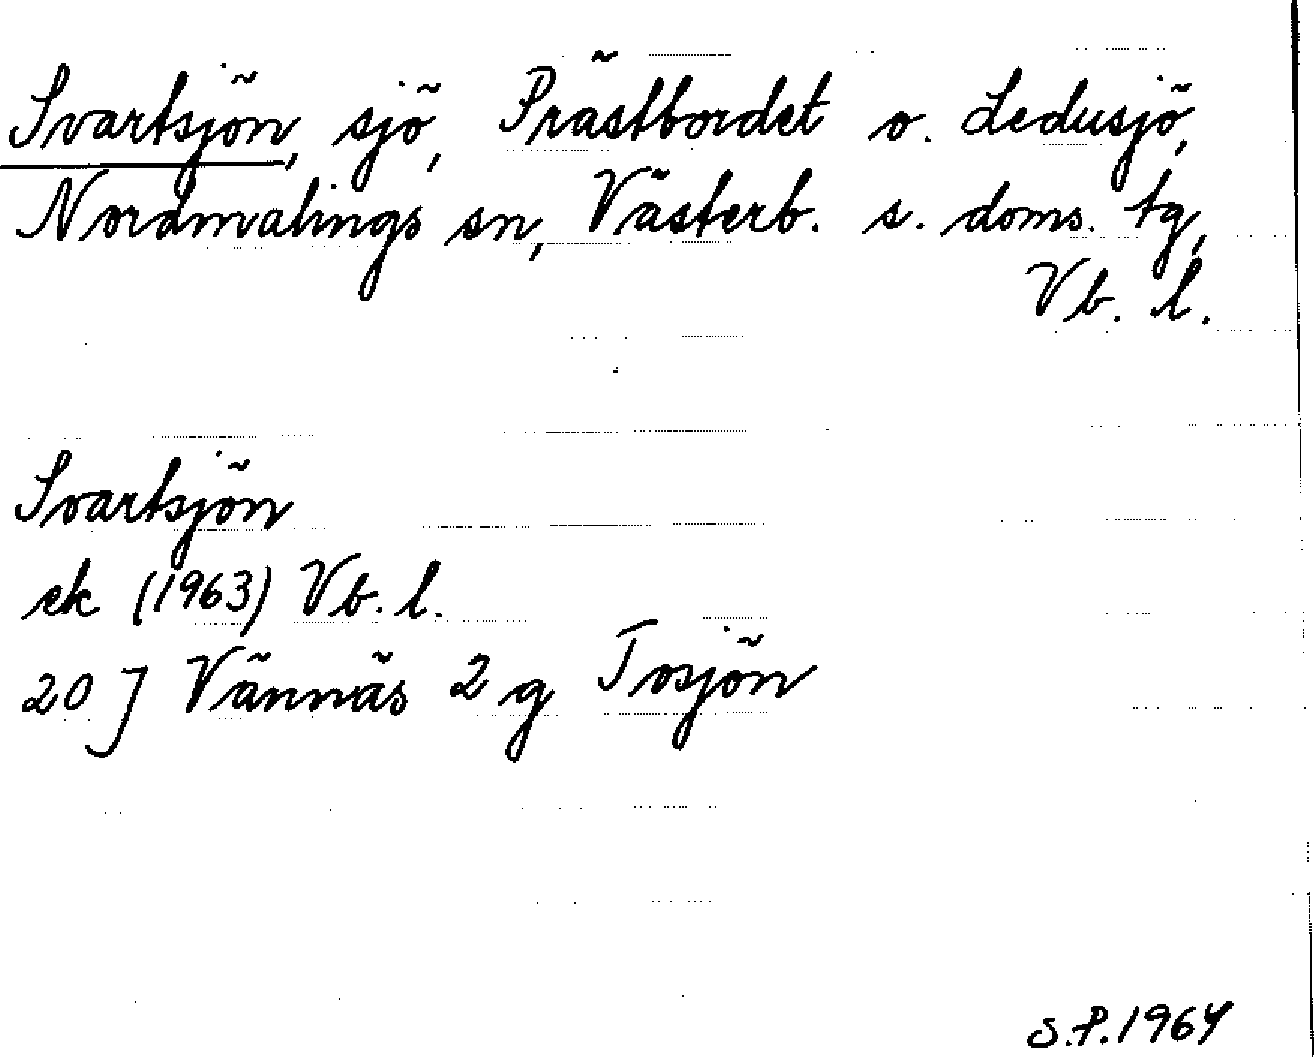 Svartsjön, sjö, Prästbordet o. Ledusjö,
Nordmalings sn, Västerb. s. doms. tg,
Vb. l.
Svartsjön
ek (1963) Vb. l.
20 J Vännäs 2 g Tosjön
S.P. 1964